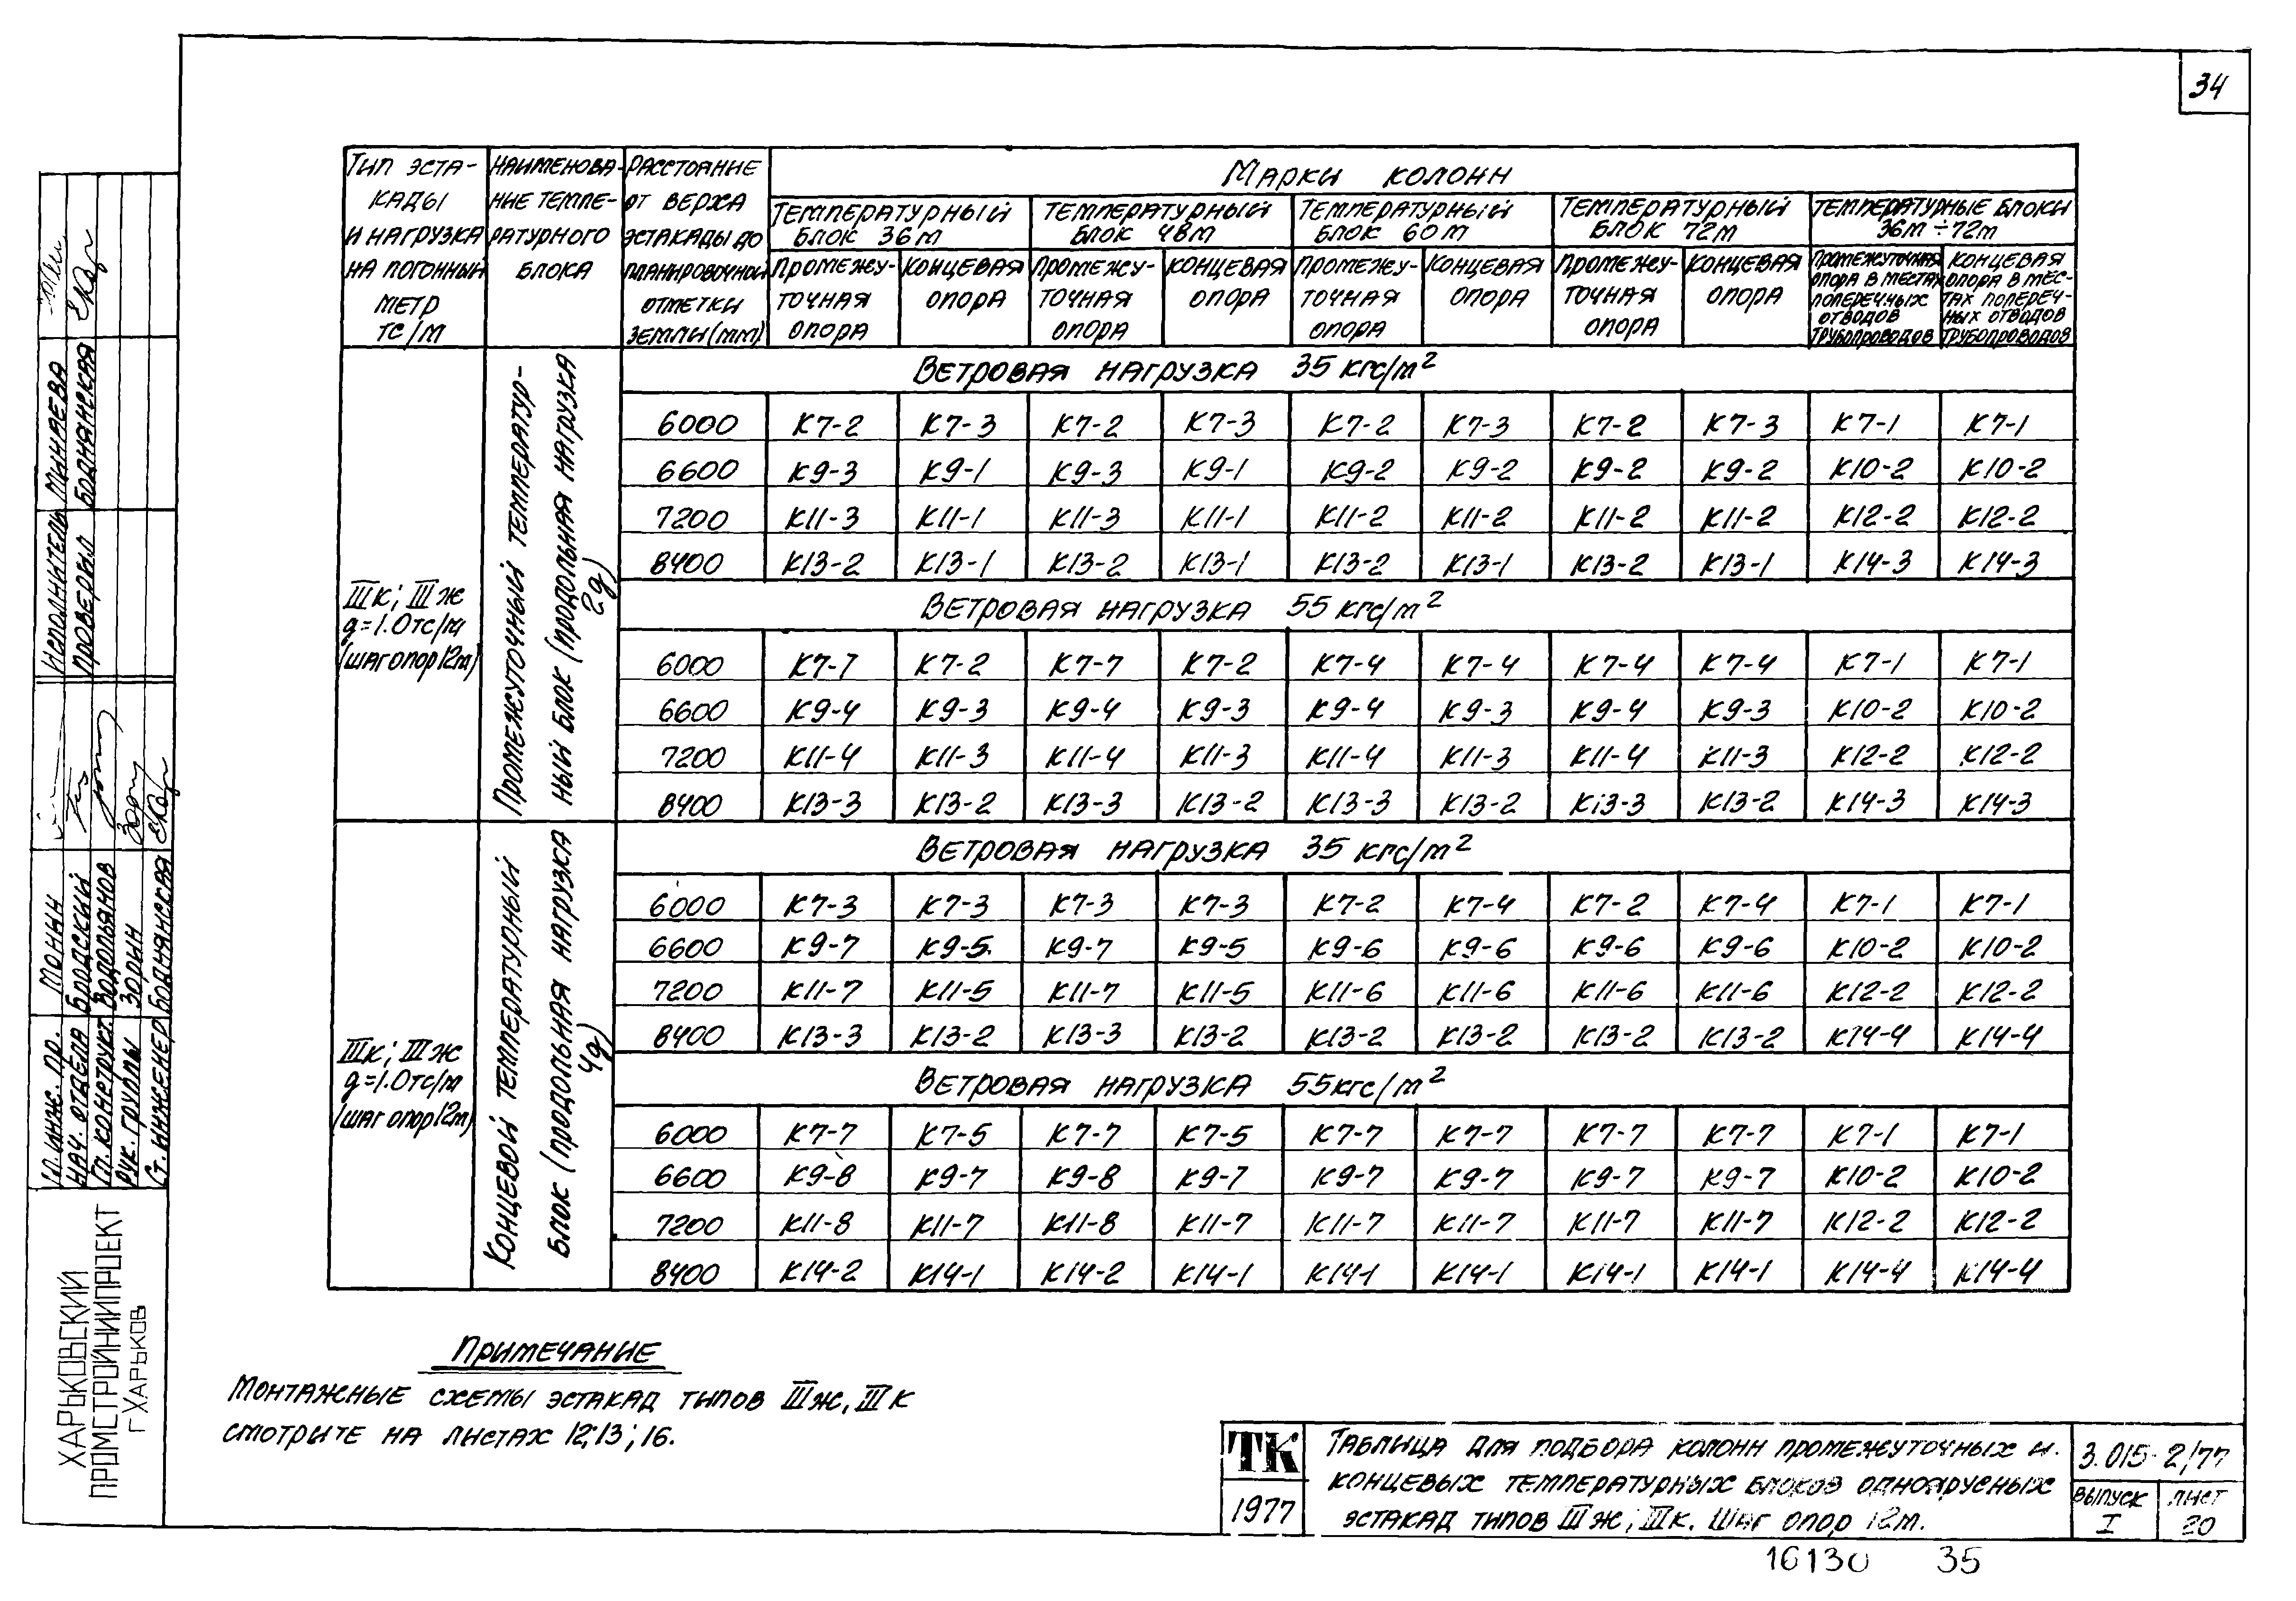 34
Тип эста-
кады
и нагрузка
на погонный
метр
тс/м
Наименова-
ние темпе-
ратурного
блока
Расстояние
от верха
эстакады до
планировочной
отметки
земли (мм)
Марки колонн
Температурный
блок 36м
Температурный
блок 48м
Температурный
блок 60м
Температурный
блок 72м
Температурные блоки
36м ÷ 72м
Промежу-
точная
опора
Концевая
опора
Промежу-
точная
опора
Концевая
опора
Промежу-
точная
опора
Концевая
опора
Промежу-
точная
опора
Концевая
опора
Промежуточная
опора в местах
поперечных
отводов
трубопроводов
Концевая
опора в мес-
тах попереч-
ных отводов
трубопроводов
IIIк; IIIж
g=1.0тс/м
(шаг опор 12м)
Промежуточный температур-
ный блок (продольная нагрузка
2g)
Ветровая нагрузка 35 кгс/м²
6000 К7-2 К7-3 К7-2 К7-3 К7-2 К7-3 К7-2 К7-3 К7-1 К7-1
6600 К9-3 К9-1 К9-3 К9-1 К9-2 К9-2 К9-2 К9-2 К10-2 К10-2
7200 К11-3 К11-1 К11-3 К11-1 К11-2 К11-2 К11-2 К11-2 К12-2 К12-2
8400 К13-2 К13-1 К13-2 К13-1 К13-2 К13-1 К13-2 К13-1 К14-3 К14-3
Ветровая нагрузка 55 кгс/м²
6000 К7-7 К7-2 К7-7 К7-2 К7-4 К7-4 К7-4 К7-4 К7-1 К7-1
6600 К9-4 К9-3 К9-4 К9-3 К9-4 К9-3 К9-4 К9-3 К10-2 К10-2
7200 К11-4 К11-3 К11-4 К11-3 К11-4 К11-3 К11-4 К11-3 К12-2 К12-2
8400 К13-3 К13-2 К13-3 К13-2 К13-3 К13-2 К13-3 К13-2 К14-3 К14-3
IIIк; IIIж
g=1.0тс/м
(шаг опор 12м)
Концевой температурный
блок (продольная нагрузка
4g)
Ветровая нагрузка 35 кгс/м²
6000 К7-3 К7-3 К7-3 К7-3 К7-2 К7-4 К7-2 К7-4 К7-1 К7-1
6600 К9-7 К9-5 К9-7 К9-5 К9-6 К9-6 К9-6 К9-6 К10-2 К10-2
7200 К11-7 К11-5 К11-7 К11-5 К11-6 К11-6 К11-6 К11-6 К12-2 К12-2
8400 К13-3 К13-2 К13-3 К13-2 К13-2 К13-2 К13-2 К13-2 К14-4 К14-4
Ветровая нагрузка 55кгс/м²
6000 К7-7 К7-5 К7-7 К7-5 К7-7 К7-7 К7-7 К7-7 К7-1 К7-1
6600 К9-8 К9-7 К9-8 К9-7 К9-7 К9-7 К9-7 К9-7 К10-2 К10-2
7200 К11-8 К11-7 К11-8 К11-7 К11-7 К11-7 К11-7 К11-7 К12-2 К12-2
8400 К14-2 К14-1 К14-2 К14-1 К14-1 К14-1 К14-1 К14-1 К14-4 К14-4
Примечание
Монтажные схемы эстакад типов IIIж, IIIк
смотрите на листах 12;13;16.
ТК
1977
Таблица для подбора колонн промежуточных и
концевых температурных блоков одноярусных
эстакад типов IIIж; IIIк. Шаг опор 12м.
3.015-2/77
Выпуск
I
Лист
20
16130 35
Исполнитель Минаева
Проверил Боднянская
Гл. инж. пр. Монин
Нач. отдела Бродский
Гл. конструкт. Водольянов
Рук. группы Зорин
Ст. инженер Боднянская
Харьковский
Промстройниипроект
г Харьков